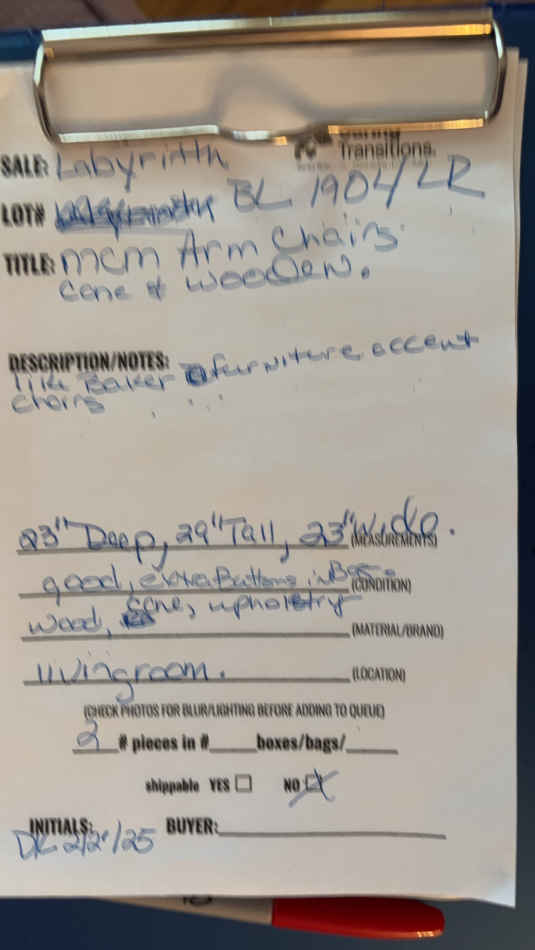 Transitions.
SALE: Labyrinth
LOT# BL 1904 LR
TITLE: mcm Arm Chairs
Cane & Wooden.
DESCRIPTION/NOTES:
like Baker furniture accent
chairs
23" Deep, 29" Tall, 23" Wide. (MEASUREMENTS)
good, extra Buttons in (CONDITION)
wood, cane, upholstry (MATERIAL/BRAND)
livingroom. (LOCATION)
(CHECK PHOTOS FOR BLUR/LIGHTING BEFORE ADDING TO QUEUE)
2 # pieces in #_____boxes/bags/_____
shippable YES ☐ NO ☒
INITIALS: BUYER: